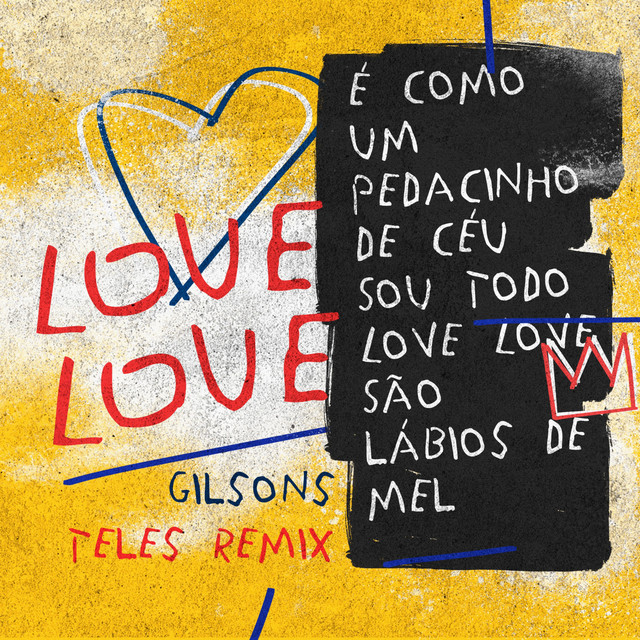 LOVE
LOVE
GILSONS
TELES REMIX
É COMO
UM
PEDACINHO
DE CÉU
SOU TODO
LOVE LOVE
SÃO
LÁBIOS DE
MEL